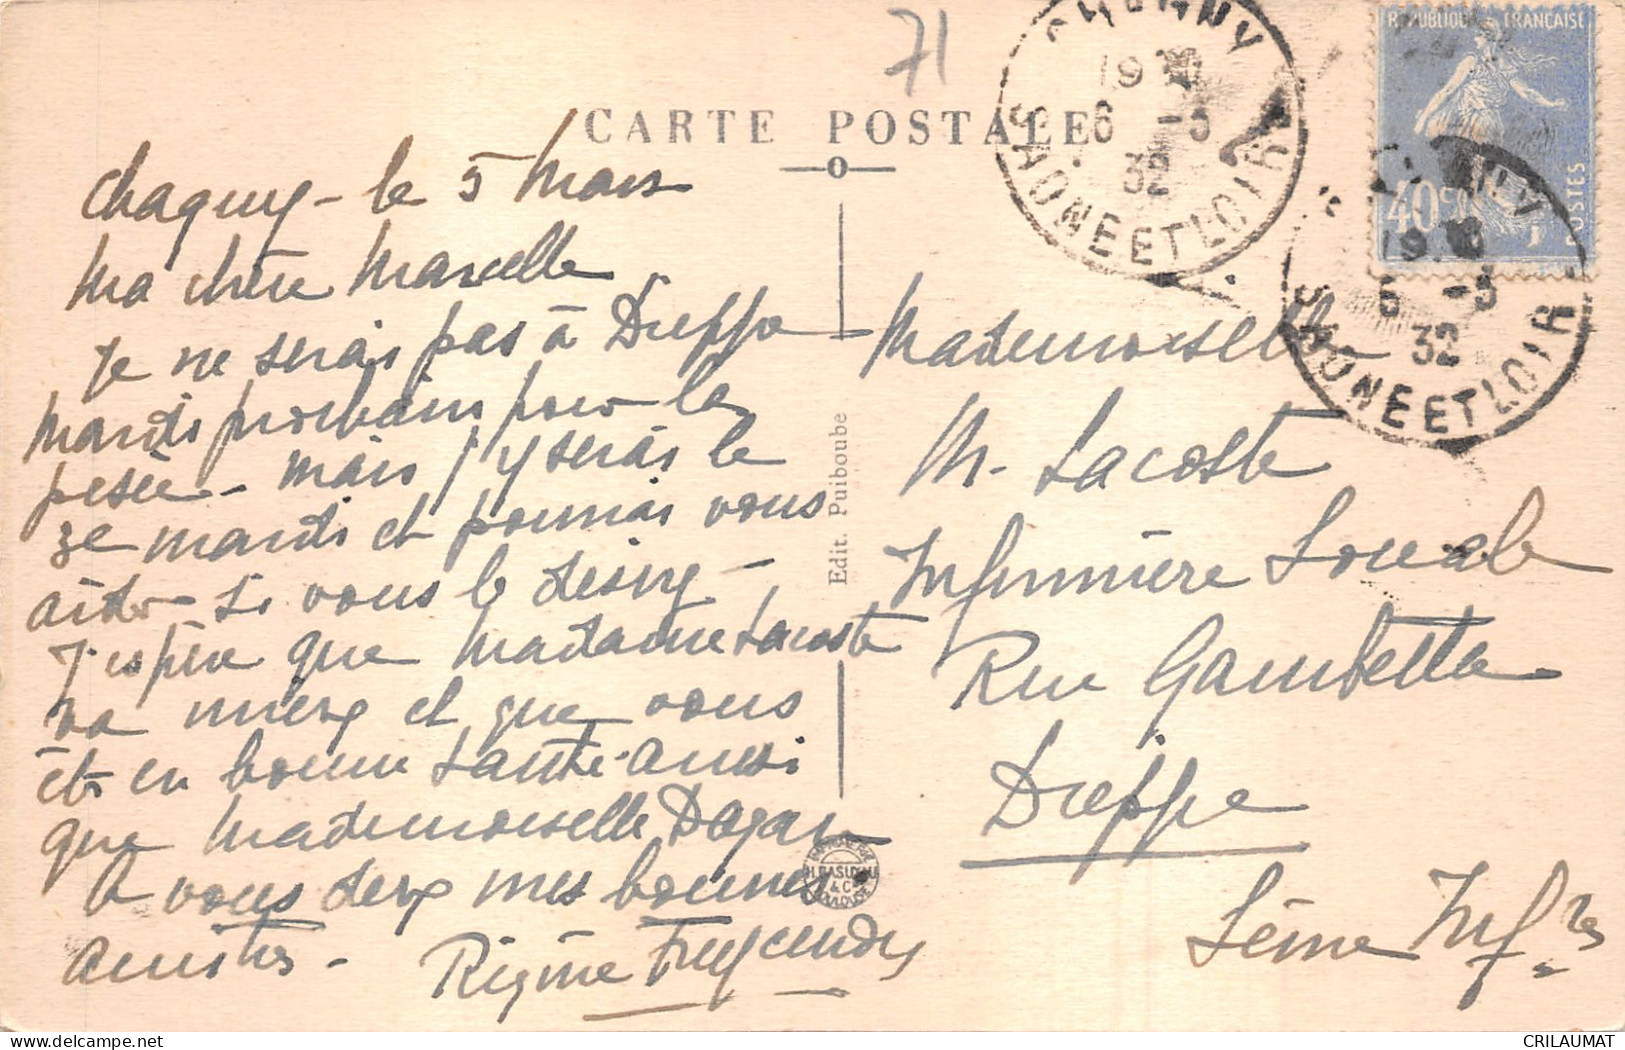 71
CARTE POSTALE
CHAGNY
19 30
6 -3
32
SAONE ET LOIRE
REPUBLIQUE FRANCAISE
40c
POSTES
19 30
6 -3
32
SAONE ET LOIRE
Chagny - le 5 Mars
Ma chère Marcelle
je ne serai pas à Dieppe
Mardi prochain pour la
pesée - mais j'y serai le
3e mardi et pourrai vous
aider si vous le désirez -
J'espère que Madame Lacoste
va mieux et que vous
êtes en bonne santé aussi
que Mademoiselle Dagan
A vous deux mes bonnes
amitiés -
Edit. Puiboube
Mademoiselle
M. Lacoste
Infirmière Sociale
Rue Gambetta
Dieppe
Seine Infre
CRILAUMAT